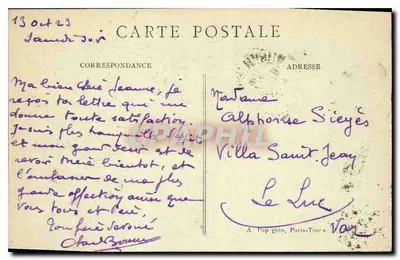 13 Oct 23
Samedi soir
CARTE POSTALE
CORRESPONDANCE
ADRESSE
Ma bien chère Jeanne, je
reçois ta lettre qui me
donne toute satisfaction.
Je suis plus tranquille
et mon grand désir est de
revoir bientôt, et
t'embrasser de ma plus
grande affection ainsi que
vous tous et
Ton frère dévoué
Madame
Alphonse Sieyès
Villa Saint Jean
Le Luc
Var
A. Papeghin, Paris-Tours